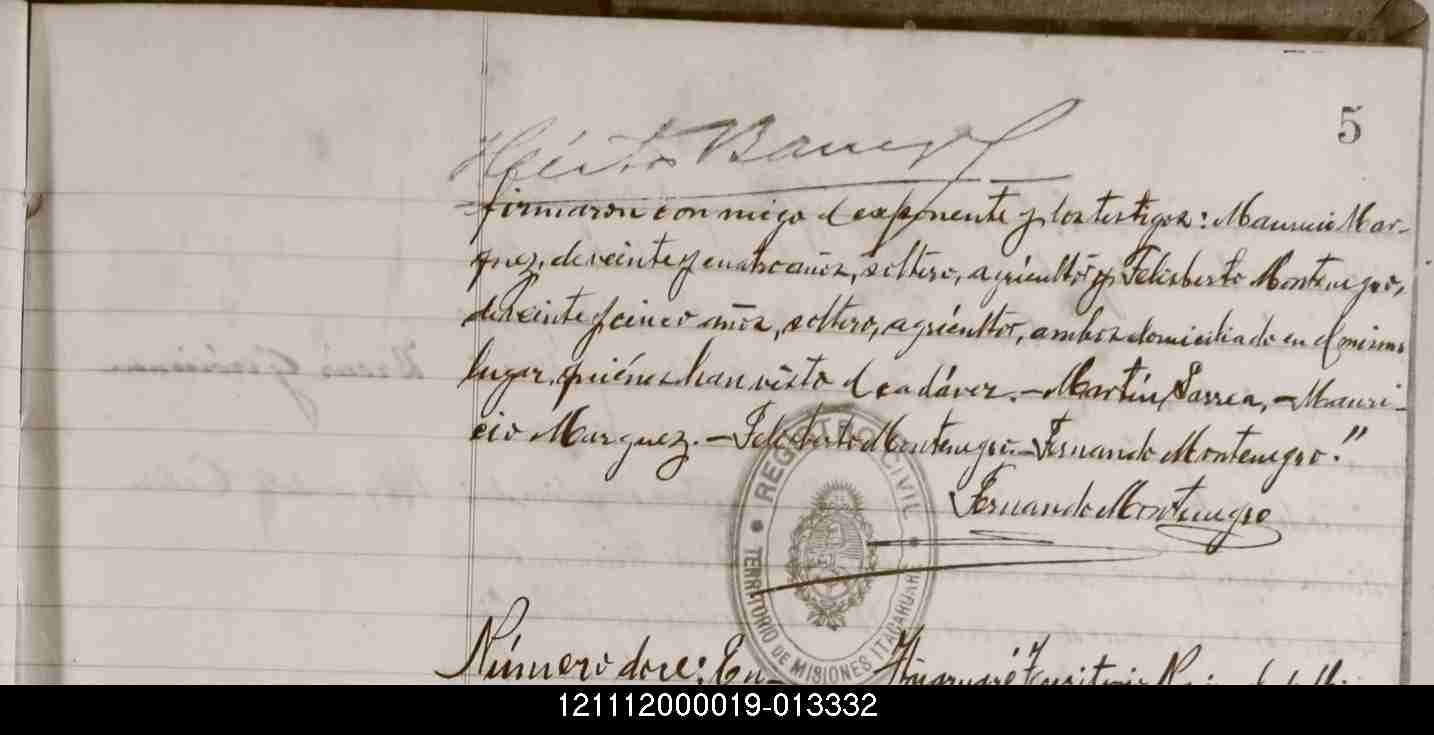 5
Héctor Barreyro
firmaron conmigo el exponente y los testigos: Mauricio Mar-
quez, de veinte y cuatro años, soltero, agricultor y Feliberto Montenegro,
de veinte y cinco años, soltero, agricultor, ambos domiciliado en el mismo
lugar, quiénes han visto el cadáver.- Martín Larrea, - Mauri-
cio Marquez. - Feliberto Montenegro. - Fernando Montenegro."
Fernando Montenegro
REGISTRO CIVIL
TERRITORIO DE MISIONES ITACARUARE
Número doce: En Itacaruaré Territorio
121112000019-013332